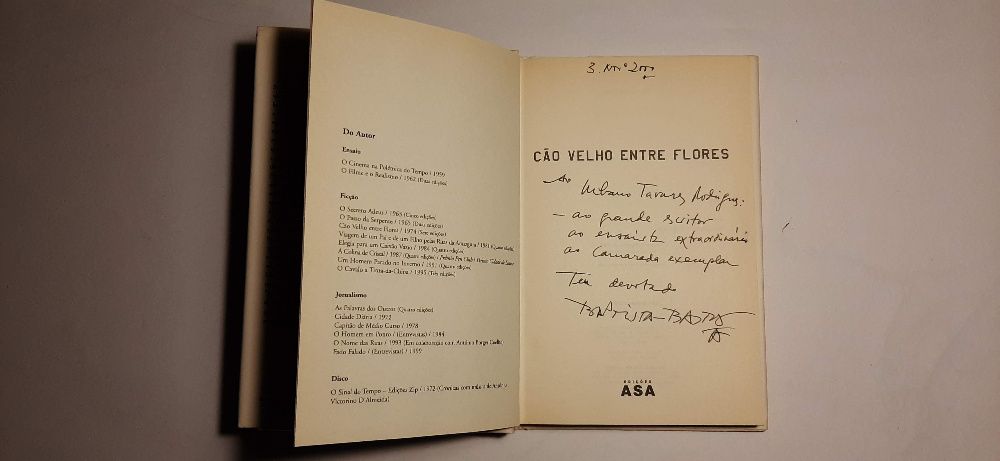 Do Autor
Ensaio
O Cinema na Polémica do Tempo / 1959
O Filme e o Realismo / 1962 (Duas edições)
Ficção
O Secreto Adeus / 1963 (Cinco edições)
O Passo da Serpente / 1965 (Duas edições)
Cão Velho entre Flores / 1974 (Sete edições)
Viagem de um Pai e de um Filho pelas Ruas da Amargura / 1981 (Quatro edições)
Elegia para um Caixão Vazio / 1984 (Quatro edições)
A Colina de Cristal / 1987 (Quatro edições)
Um Homem Parado no Inverno / 1991 (Quatro edições)
O Cavalo a Tinta-da-China / 1995 (Três edições)
Jornalismo
As Palavras dos Outros (Quatro edições)
Cidade Diária / 1972
Capitão de Médio Curso / 1978
O Homem em Ponto / (Entrevistas) / 1984
O Nome das Ruas / 1993 (Em colaboração com António Borges Coelho)
Fado Falado / (Entrevistas) / 1999
Disco
O Sinal do Tempo – Edições Zip / 1972 (Crónicas com música de
Victorino D'Almeida)
CÃO VELHO ENTRE FLORES
Ao Urbano Tavares Rodrigues.
— ao grande escritor
ao ensaísta extraordinário
ao Camarada exemplar
Teu devotado
BAPTISTA-BASTOS
EDIÇÕES
ASA